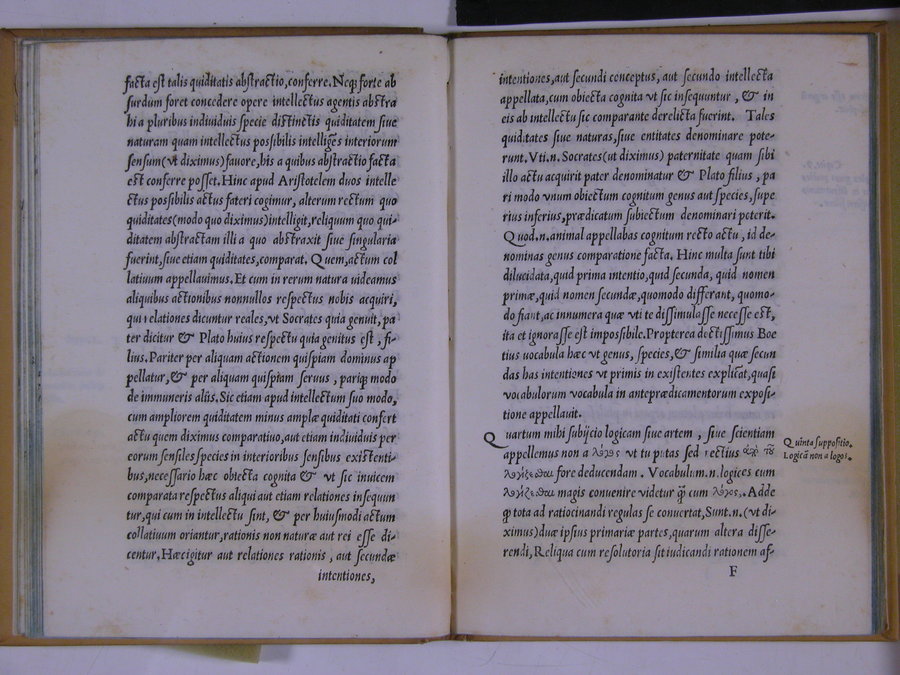 facta est talis quiditatis abstractio, conferre. Neq; forte ab
surdum foret concedere opere intellectus agentis abstra
hi a pluribus indiuiduis specie distinctis quiditatem siue
naturam quam intellectus possibilis intelligẽs interiorum
sensum (vt diximus) fauore, his a quibus abstractio facta
est conferre posset. Hinc apud Aristotelem duos intelle
ctus possibilis actus fateri cogimur, alterum rectum quo
quiditates (modo quo diximus) intelligit, reliquum quo qui-
ditatem abstractam illi a quo abstraxit siue singularia
fuerint, siue etiam quiditates, comparat. Quem, actum col
latiuum appellauimus. Et cum in rerum natura uideamus
aliquibus actionibus nonnullos respectus nobis acquiri,
qui relationes dicuntur reales, vt Socrates quia genuit, pa
ter dicitur & Plato huius respectu quia genitus est, fi-
lius. Pariter per aliquam actionem quispiam dominus ap
pellatur, & per aliquam quispiam seruus, pariq; modo
de immuneris aliis, Sic etiam apud intellectum suo modo,
cum ampliorem quiditatem minus amplæ quiditati confert
actu quem diximus comparatiuo, aut etiam indiuiduis per
eorum sensiles species in interioribus sensibus existenti-
bus, necessario hæc obiecta cognita & vt sic inuicem
comparata respectus aliqui aut etiam relationes insequun
tur, qui cum in intellectu sint, & per huiusmodi actum
collatiuum oriantur, rationis non naturæ aut rei esse di-
centur, Hæc igitur aut relationes rationis, aut secundæ
intentiones,
intentiones, aut secundi conceptus, aut secundo intellecta
appellata, cum obiecta cognita vt sic insequuntur, & in
eis ab intellectu sic comparante derelicta fuerint. Tales
quiditates siue naturas, siue entitates denominare pote-
runt. Vti. n. Socrates (ut diximus) paternitate quam sibi
illo actu acquirit pater denominatur & Plato filius, pa
ri modo vnum obiectum cognitum genus aut species, supe
rius inferius, prædicatum subiectum denominari poterit.
Quod. n. animal appellabas cognitum recto actu, id de-
nominas genus comparatione facta. Hinc multa sunt tibi
dilucidata, quid prima intentio, quid secunda, quid nomen
primæ, quid nomen secundæ, quomodo differant, quomo-
do fiant, ac innumera quæ vti te dissimulasse necesse est,
ita et ignorasse est impossibile. Propterea doctissimus Boe
tius uocabula hæc vt genus, species, & similia quæ secun
das has intentiones vt primis in existentes explicãt, quasi
vocabulorum vocabula in anteprædicamentorum exposi-
tione appellauit.
Quartum mihi subijcio logicam siue artem, siue scientiam
appellemus non a λόγος vt tu putas sed rectius ἀπὸ τοῦ
λογίζεσθαι fore deducendam. Vocabulum. n. logices cum
λογίζεσθαι magis conuenire videtur q̃ cum λόγος. Adde
q̃ tota ad ratiocinandi regulas se conuertat, Sunt. n. (vt di-
ximus) duæ ipsius primariæ partes, quarum altera disse-
rendi, Reliqua cum resolutoria sit iudicandi rationem af-
F
Quinta suppositio.
Logicã non a logos.